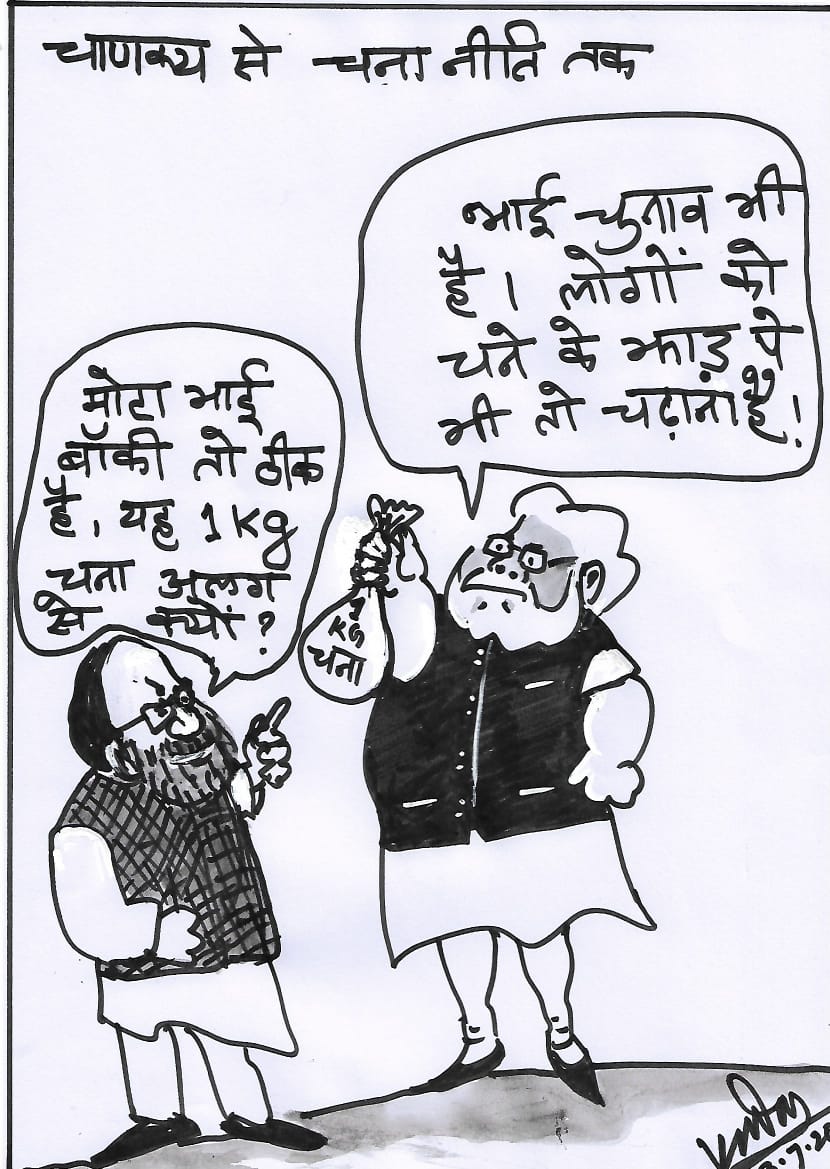 चाणक्य से चना नीति तक
भाई चुनाव भी
है। लोगों को
चने के झाड़ पे
भी तो चढ़ाना है!
मोटा भाई
बाॅकी तो ठीक
है। यह 1kg
चना अलग
से क्यों?
1
KG
चना